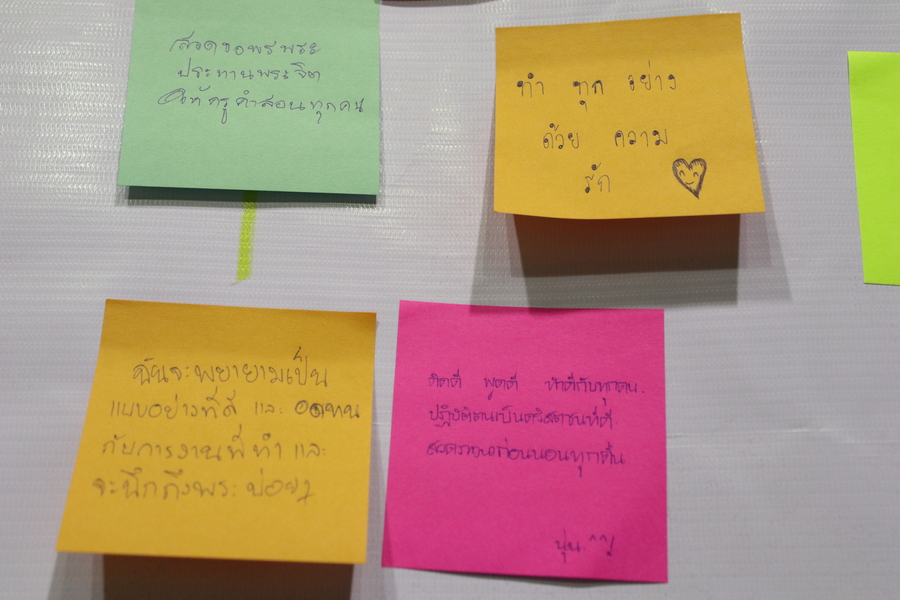 สวดขอพรพระ
ประทานพระจิต
ให้ครูคำสอนทุกคน
ทำ ทุก อย่าง
ด้วย ความ
รัก
ฉันจะพยายามเป็น
แบบอย่างที่ดี และ อดทน
กับการงานที่ทำ และ
จะนึกถึงพระบ่อยๆ
คิดดี พูดดี ทำดีกับทุกคน.
ปฏิบัติตนเป็นคริสตชนที่ดี.
สวดภาวนาก่อนนอนทุกคืน
ปุ่น. ^^!